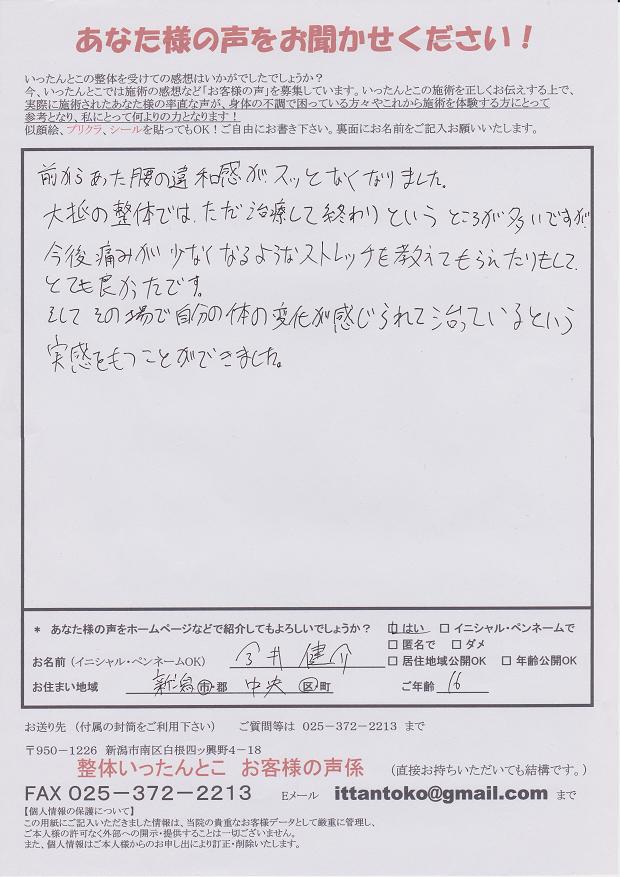 あなた様の声をお聞かせください！
いったんとこの整体を受けての感想はいかがでしたでしょうか？
今、いったんとこでは施術の感想など「お客様の声」を募集しています。いったんとこの施術を正しくお伝えする上で、
実際に施術されたあなた様の率直な声が、身体の不調で困っている方々やこれから施術を体験する方にとって
参考となり、私にとって何よりの力となります！
似顔絵、プリクラ、シールを貼ってもOK！ご自由にお書き下さい。裏面にお名前をご記入お願いいたします。
前からあった腰の違和感がスッとなくなりました。
大抵の整体では、ただ治療して終わりというところが多いですが
今後痛みが少なくなるようなストレッチを教えてもらえたりもして、
とても良かったです。
そしてその場で自分の体の変化が感じられて治っているという
実感をもつことができました。
* あなた様の声をホームページなどで紹介してもよろしいでしょうか？ □ はい □ イニシャル・ペンネームで
□ 匿名で □ ダメ
お名前（イニシャル・ペンネームOK） 今井 健介 □ 居住地域公開OK □ 年齢公開OK
お住まい地域 新潟 市・郡 中央 区・町 ご年齢 16
お送り先 （付属の封筒をご利用下さい） ご質問等は 025－372－2213 まで
〒950－1226 新潟市南区白根四ッ興野4－18
整体いったんとこ お客様の声係 （直接お持ちいただいても結構です。）
FAX 025－372－2213 Eメール ittantoko@gmail.com まで
【個人情報の保護について】
この用紙にご記入いただきました情報は、当院の貴重なお客様データとして厳重に管理し、
ご本人様の許可なく外部への開示・提供することは一切ございません。
また、個人情報はご本人様からのお申し出により訂正・削除いたします。